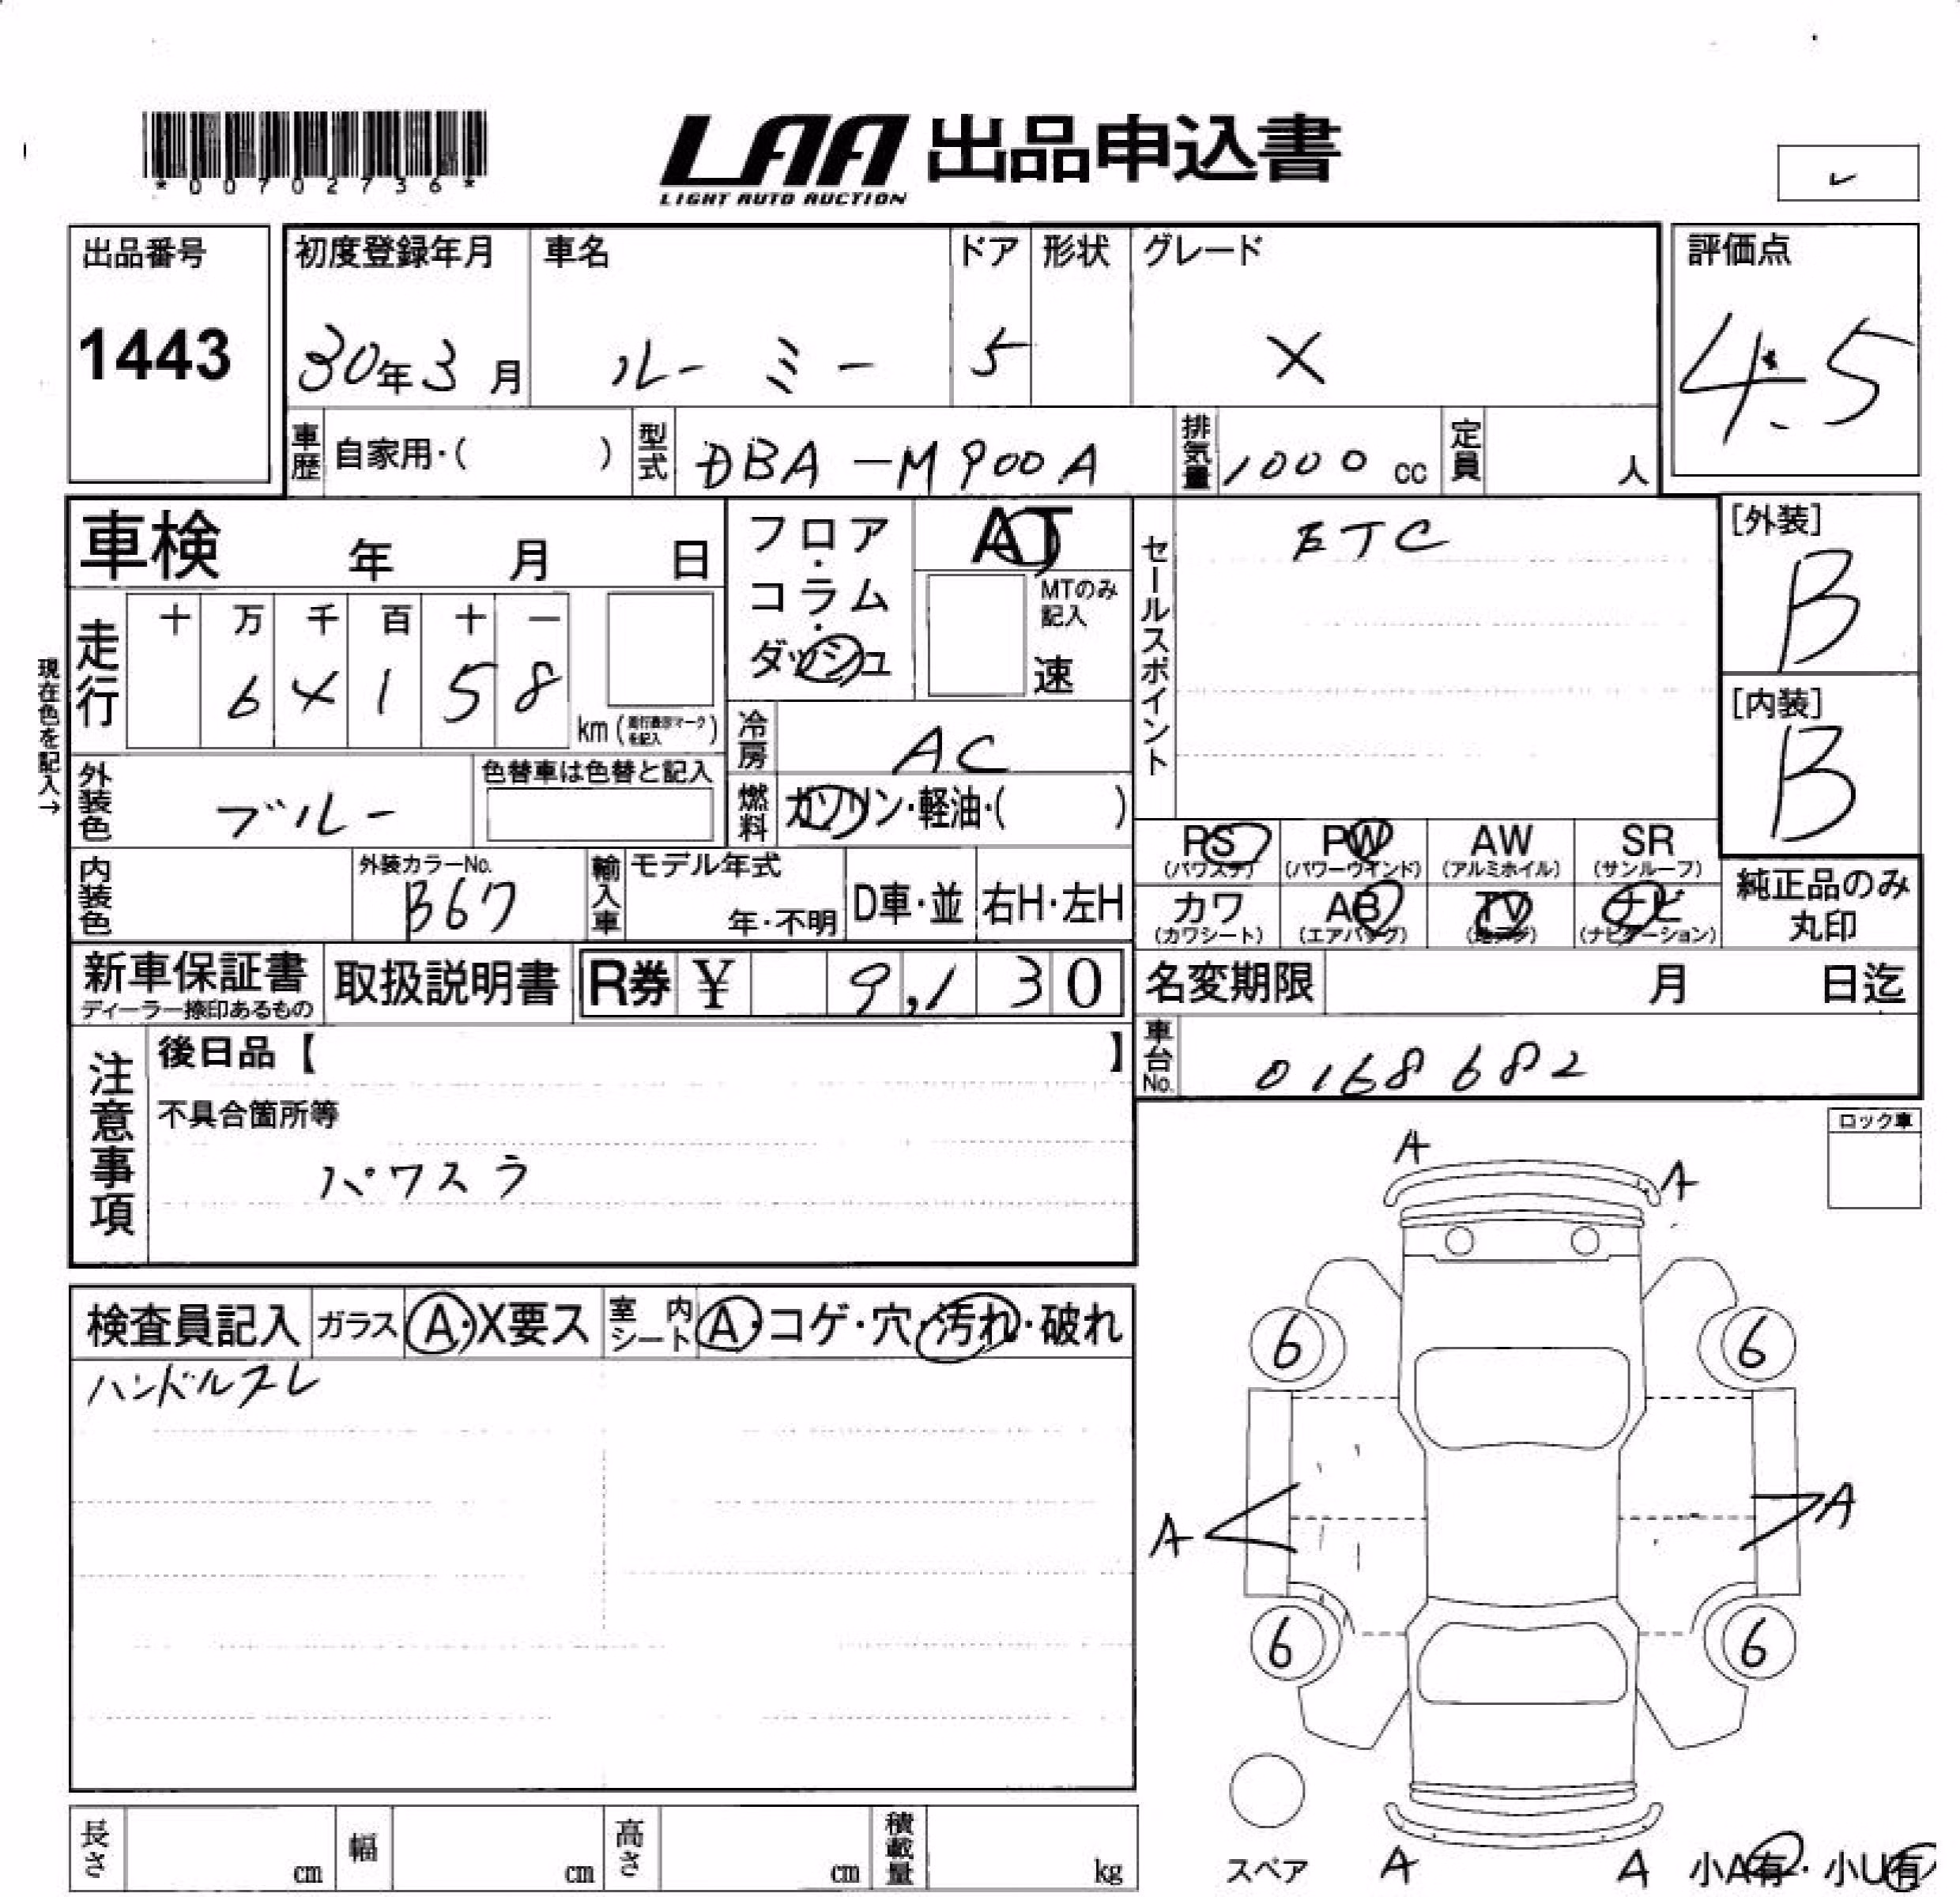 *00702736*
LAA 出品申込書
LIGHT AUTO AUCTION
出品番号
1443
初度登録年月
30年3月
車名
ルーミー
ドア
5
形状
グレード
X
評価点
4.5
車歴 自家用・( )
型式 DBA-M900A
排気量 1000 cc
定員 人
車検 年 月 日
現在色を記入→
走行 十 万 千 百 十 一
6 4 1 5 8
km(走行表示マークを記入)
フロア・コラム・ダッシュ
AT
MTのみ記入
速
セールスポイント
ETC
[外装]
B
[内装]
B
冷房 AC
外装色 ブルー
色替車は色替と記入
燃料 ガソリン・軽油・( )
PS (パワステ)
PW (パワーウインド)
AW (アルミホイル)
SR (サンルーフ)
カワ (カワシート)
AB (エアバッグ)
TV (地デジ)
ナビ (ナビゲーション)
純正品のみ
丸印
内装色
外装カラーNo.
B67
輸入車 モデル年式
年・不明
D車・並
右H・左H
新車保証書
ディーラー捺印あるもの
取扱説明書
R券 ¥ 9,130
名変期限 月 日迄
車台No. 0168682
注意事項
後日品【 】
不具合箇所等
パワスラ
ロック車
A
A
検査員記入 ガラス A・X要ス
室内シート A・コゲ・穴・汚れ・破れ
ハンドルスレ
6
6
A
A
6
6
スペア
A
A
小A有・小U有
長さ cm
幅 cm
高さ cm
積載量 kg